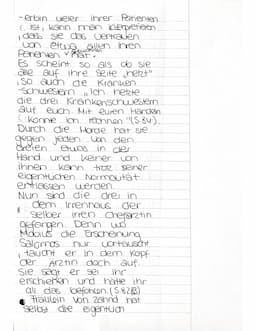 -erbin vieler ihrer Patienten
ist, kann man interpretieren
, dass sie das Vertrauen
von etwa allen ihren
Patienten hat.
Es scheint so als ob sie
alle auf ihre Seite „hetzt"
. So auch die Kranken
-schwestern. „Ich hetzte
die drei Krankenschwestern
auf euch. Mit euren Händen
konnte ich rechnen" (S.84).
Durch die Morde hat sie
gegen jeden von den
dreien etwas in der
Hand und keiner von
ihnen kann trotz seiner
eigentlichen Normalität
entlassen werden.
Nun sind die drei in
dem Irrenhaus der
selber irren Chefärztin
gefangen. Denn wo
Möbius die Erscheinung
Salomos nur vortäuscht
, taucht er in dem Kopf
der Ärztin doch auf.
Sie sagt er sei ihr
erschienen und hätte ihr
all das befohlen. (S.82)
Fräulein von Zahnd hat
selbst die eigentlich